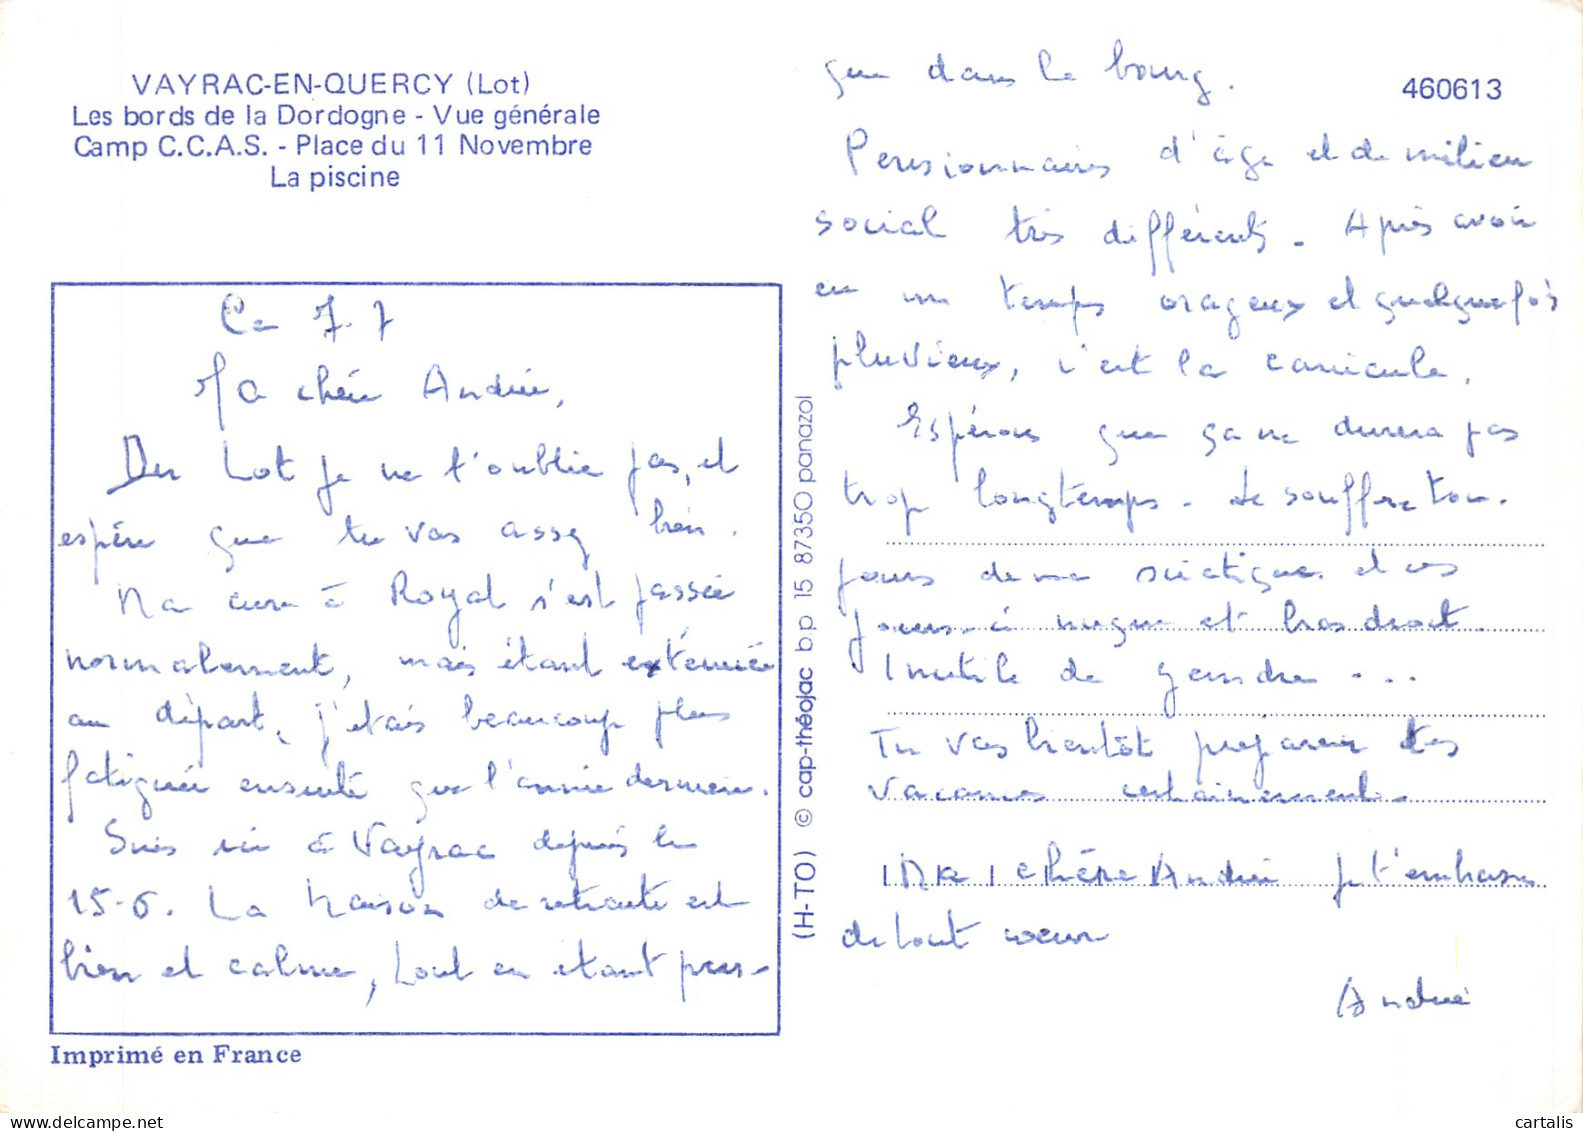 VAYRAC-EN-QUERCY (Lot)
Les bords de la Dordogne - Vue générale
Camp C.C.A.S. - Place du 11 Novembre
La piscine
Ce 7.7
Ma chère Andrée,
Du Lot je ne t'oublie pas, et
espère que tu vas assez bien.
Ma cure à Royat s'est passée
normalement, mais étant exténuée
au départ, j'étais beaucoup plus
fatiguée ensuite que l'année dernière.
Suis ici à Vayrac depuis le
15-6. La Maison de retraite est
bien et calme, tout en étant pres-
Imprimé en France
(H-TO) © cap-théojac b.p 15 87350 panazol
460613
que dans le bourg.
Pensionnaires d'âge et de milieu
social très différents. Après avoir
eu un temps orageux et quelquefois
pluvieux, c'est la canicule.
Espérons que ça ne durera pas
trop longtemps. Je souffre tou-
jours de ma sciatique et ces
jours-ci nuque et bras droit.
Inutile de geindre...
Tu vas bientôt préparer tes
vacances certainement.
Ma chère Andrée je t'embrasse
de tout coeur
Andrée
cartalis